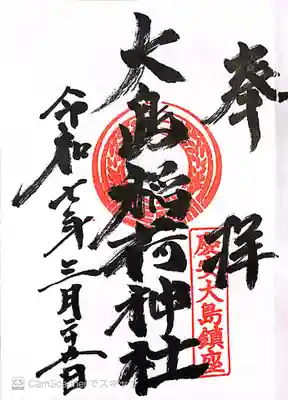 奉拝
慶安大島鎮座
大島稲荷神社
令和七年三月五日
CS CamScannerでス